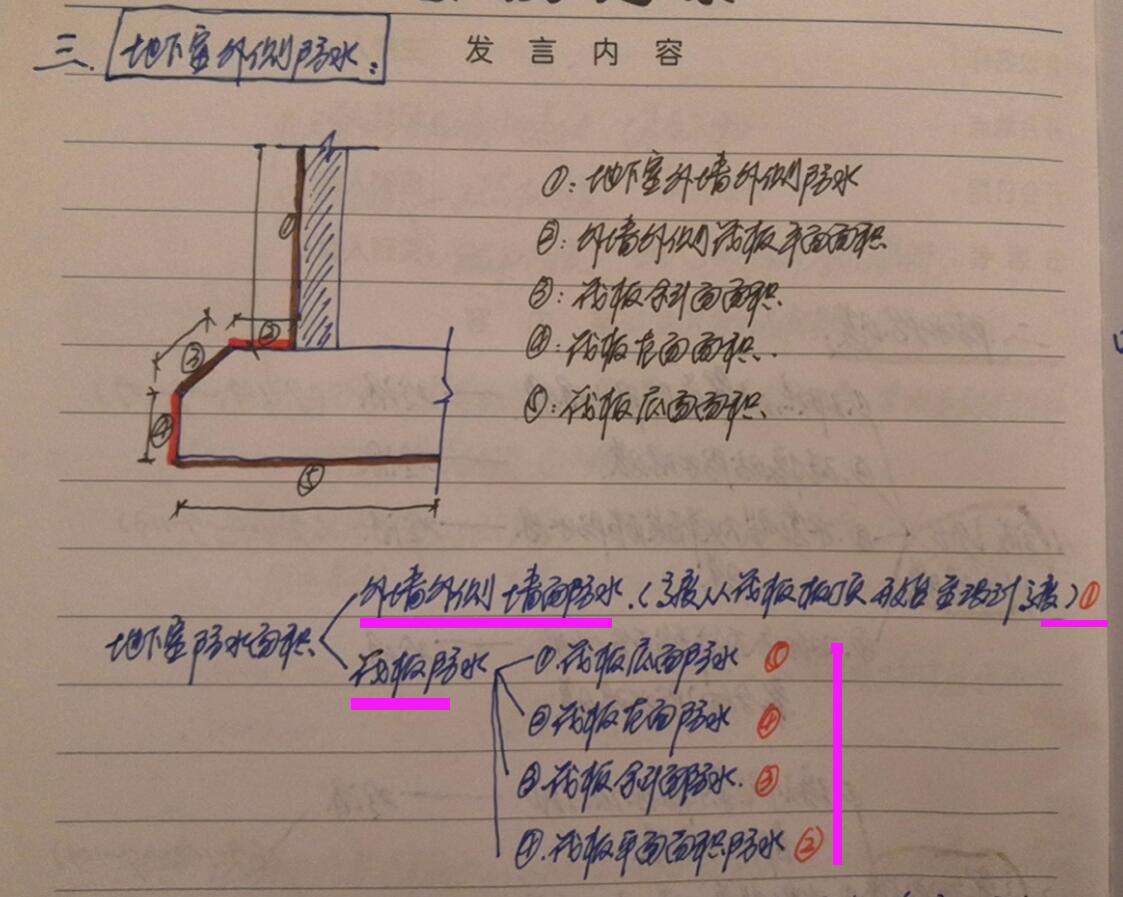 三. 地下室外侧防水:
发言内容
①: 地下室外墙外侧防水
②: 外墙外侧筏板平面面积
③: 筏板斜面面积.
④: 筏板立面面积.
⑤: 筏板底面面积.
①
②
③
④
⑤
外墙外侧墙面防水.(高度从筏板板顶至设计高度) ①
地下室防水面积
筏板防水
①.筏板底面防水 ⑤
②筏板立面防水 ④
③.筏板斜面防水. ③
④.筏板平面面积防水 ②